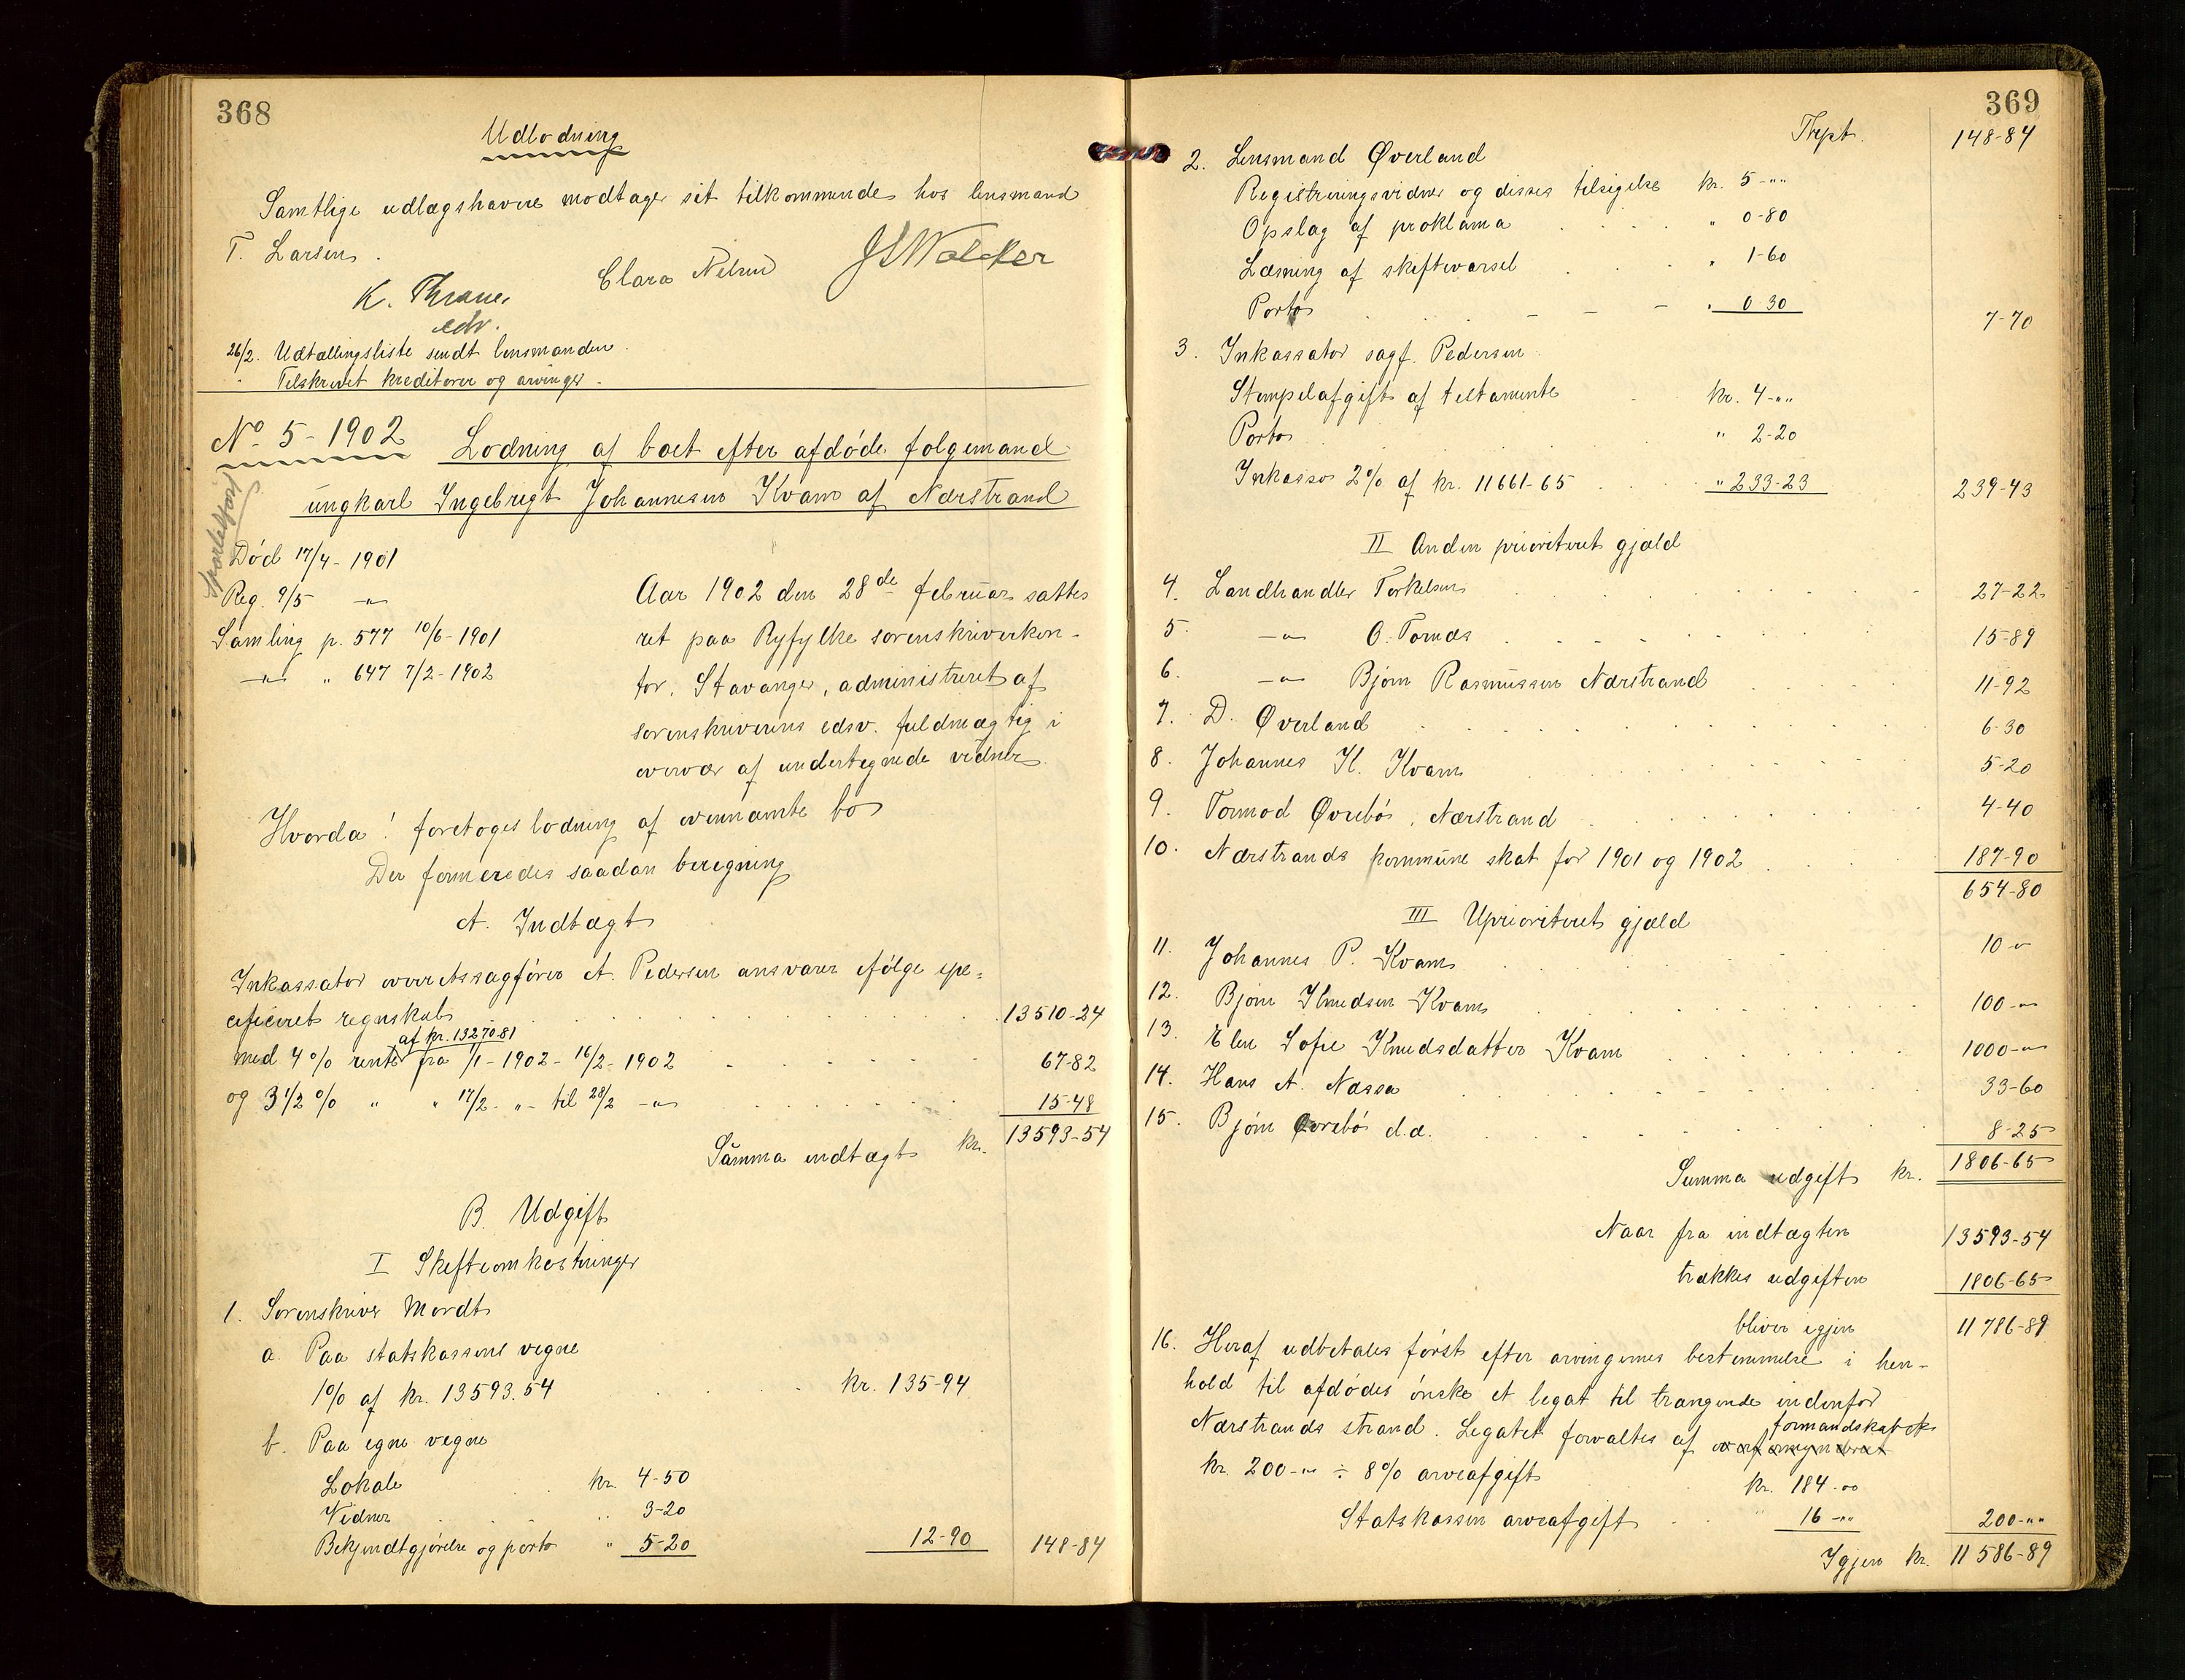 368
Udlodning
Samtlige udlægshavere modtager sit tilkommende hos lensmand
T. Larsen.
K. Thrane Clara Nelsen
edv.
26/2. Udtællingsliste sendt lensmanden.
" Tilskrevet kreditorer og arvinger.
No. 5-1902 Lodning af boet efter afdøde folgemand
ungkarl Ingebrigt Johannesen Kvam af Nærstrand
Død 17/4-1901
Reg. 9/5 -"-
Samling p. 577 10/6-1901
-"- " 647 7/2-1902
Aar 1902 den 28de februar sattes
ret paa Ryfylke sorenskriverkon-
tor, Stavanger, administreret af
sorenskriverens edsv. fuldmægtig i
overvær af undertegnede vidner.
Hvorda! foretoges lodning af ovennævnte bo
Der formeredes saadan beregning
A. Indtægt
Inkassator overretssagfører A. Pedersen ansvarer ifølge spe-
cificeret regnskab . . . 13510-24
af kr. 13270.81
med 4% rente fra 1/1-1902-16/2-1902 67-82
og 3 1/2 % " " 17/2-"- til 28/2 -"- 15-48
Summa indtægt kr. 13593-54
B. Udgift
I Skifteomkostninger
1. Sorenskriver Mordt
a. Paa statskassens vegne
1% af kr. 13593.54 . . . kr. 135-94
b. Paa egne vegne
Lokale . kr. 4-50
Vidner . . " 3-20
Bekjendtgjørelse og porto " 5-20 12-90 148-84
369
Trpt. 148-84
2. Lensmand Øverland
Registreringsvidner og disses tilsigelse kr. 5-""
Opslag af proklama . . . " 0-80
Læsning af skiftevarsel . . " 1-60
Porto . - - - " 0-30 7-70
3. Inkassator sagf. Pedersen
Stempelafgift af testamente . kr. 4-""
Porto . . . " 2-20
Inkasso 2% af kr. 11661-65 . . " 233-23 239-43
II Anden prioriteret gjæld
4. Landhandler Torkelsen . . . 27-22
5. -"- O. Tornæs . . . 15-89
6. -"- Bjørn Rasmussen Nærstrand . . 11-92
7. D. Øverland . . . 6-30
8. Johannes K. Kvam . . . 5-20
9. Tormod Øvrebø, Nærstrand . . . 4-40
10. Nærstrands kommune skat for 1901 og 1902 . . 187-90
654-80
III Uprioriteret gjæld
11. Johannes P. Kvam . . . 10-"
12. Bjørn Knudsen Kvam . . . 100-"
13. Elen Sofie Knudsdatter Kvam . . . 1000-"
14. Hans A. Næssa . . . 33-60
15. Bjørn Øvrebø d.æ. . . . 8-25
Summa udgift kr. 1806-65
Naar fra indtægten 13593-54
trækkes udgiften 1806-65
bliver igjen 11786-89
16. Heraf udbetales først efter arvingernes bestemmelse i hen-
hold til afdødes ønske et legat til trængende indenfor
formandskabet
Nærstrands strand. Legatet forvaltes af overformynderiet
kr. 200-"" ÷ 8% arveafgift kr. 184.00
Statskassen arveafgift . . " 16-"" 200-""
Igjen kr. 11586-89